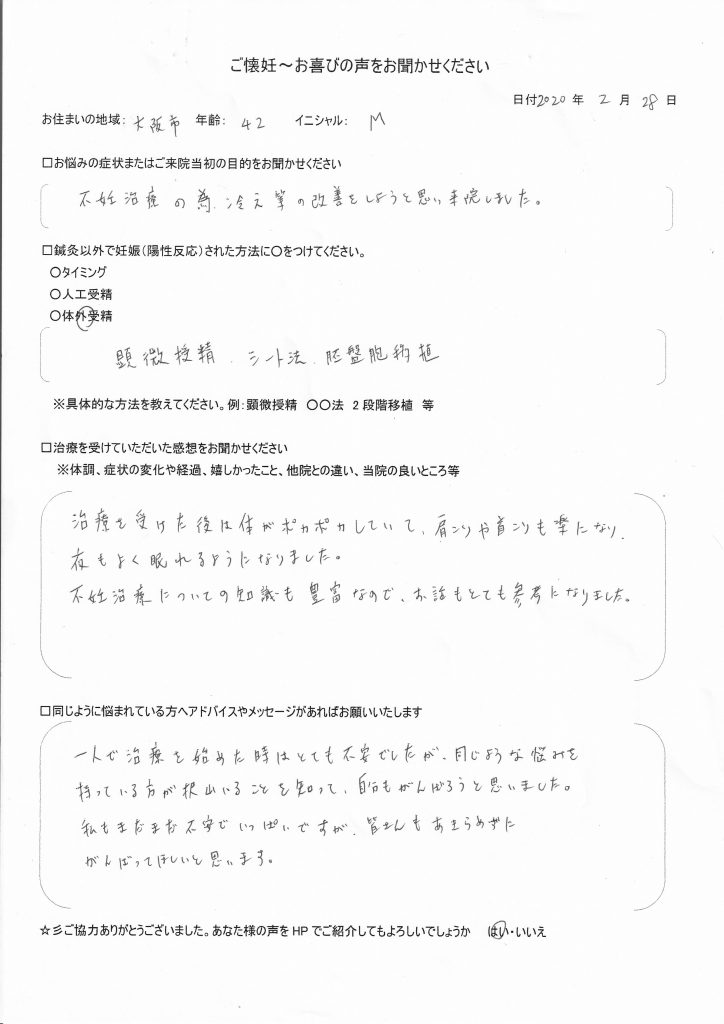 ご懐妊～お喜びの声をお聞かせください
日付2020 年 2 月 28 日
お住まいの地域： 大阪市 年齢： 42 イニシャル： M
□お悩みの症状またはご来院当初の目的をお聞かせください
不妊治療の為、冷え等の改善をしようと思い来院しました。
□鍼灸以外で妊娠（陽性反応）された方法に〇をつけてください。
〇タイミング
〇人工受精
〇体外受精
顕微授精、シート法、胚盤胞移植
※具体的な方法を教えてください。例：顕微授精 〇〇法 2段階移植 等
□治療を受けていただいた感想をお聞かせください
※体調、症状の変化や経過、嬉しかったこと、他院との違い、当院の良いところ等
治療を受けた後は体がポカポカしていて、肩こりや首こりも楽になり、
夜もよく眠れるようになりました。
不妊治療についての知識も豊富なので、お話もとても参考になりました。
□同じように悩まれている方へアドバイスやメッセージがあればお願いいたします
一人で治療を始めた時はとても不安でしたが、同じような悩みを
持っている方が沢山いることを知って、自分もがんばろうと思いました。
私もまだまだ不安でいっぱいですが、皆さんもあきらめずに
がんばってほしいと思います。
☆彡ご協力ありがとうございました。あなた様の声をHPでご紹介してもよろしいでしょうか はい・いいえ